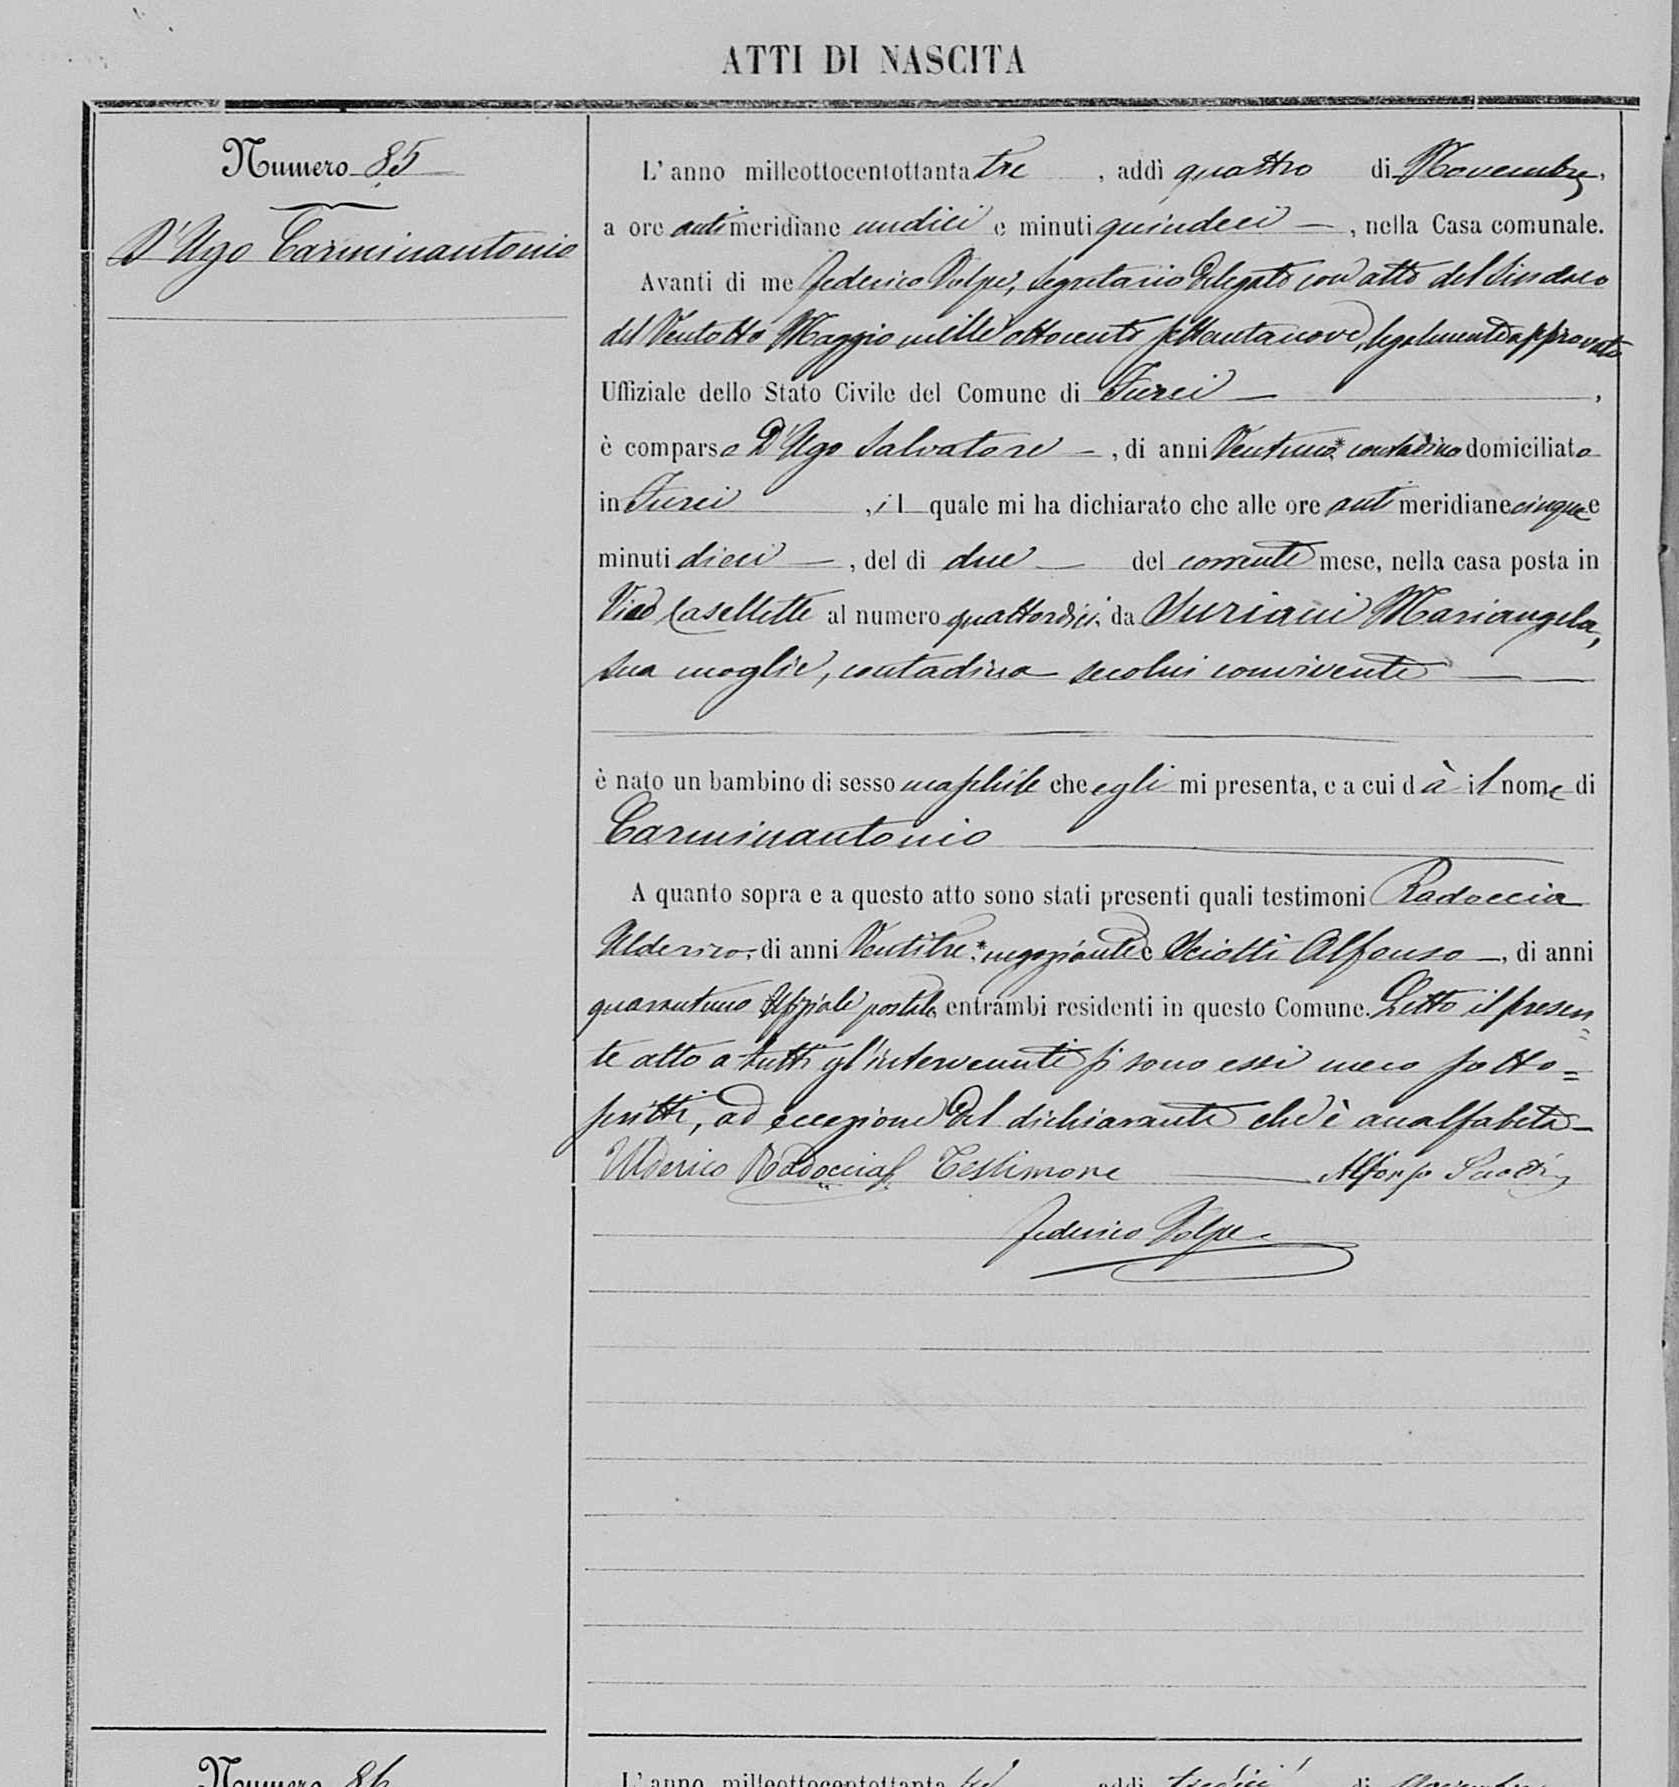 ATTI DI NASCITA
Numero 85
D'Ugo Carminantonio
L'anno milleottocentottanta tre, addì quattro di Novembre,
a ore antimeridiane undici e minuti quindeci —, nella Casa comunale.
Avanti di me Federico Volpe, Segretario Delegato con atto del Sindaco
del Ventotto Maggio mille ottocento settantanove, legalmente approvato
Uffiziale dello Stato Civile del Comune di Furci —,
è comparso D'Ugo Salvatore —, di anni Ventuno * contadino domiciliato
in Furci, il quale mi ha dichiarato che alle ore antimeridiane cinque e
minuti dieci —, del dì due — del corrente mese, nella casa posta in
Vico Casellette al numero quattordici, da Suriani Mariangela,
sua moglie, contadina secolui convivente —
è nato un bambino di sesso maschile che egli mi presenta, e a cui dà il nome di
Carminantonio
A quanto sopra e a questo atto sono stati presenti quali testimoni Radoccia
Ulderico, di anni Ventitre * negoziante e Sciotti Alfonso —, di anni
quarantuno Uffiziale postale, entrambi residenti in questo Comune. Letto il presen=
te atto a tutti gl'intervenuti si sono essi meco sotto=
scritti, ad eccezione del dichiarante che è analfabeta —
Ulderico Radoccia Testimone — Alfonso Sciotti
Federico Volpe
Numero 86
L'anno milleottocentottanta tre addì tredici di Novembre